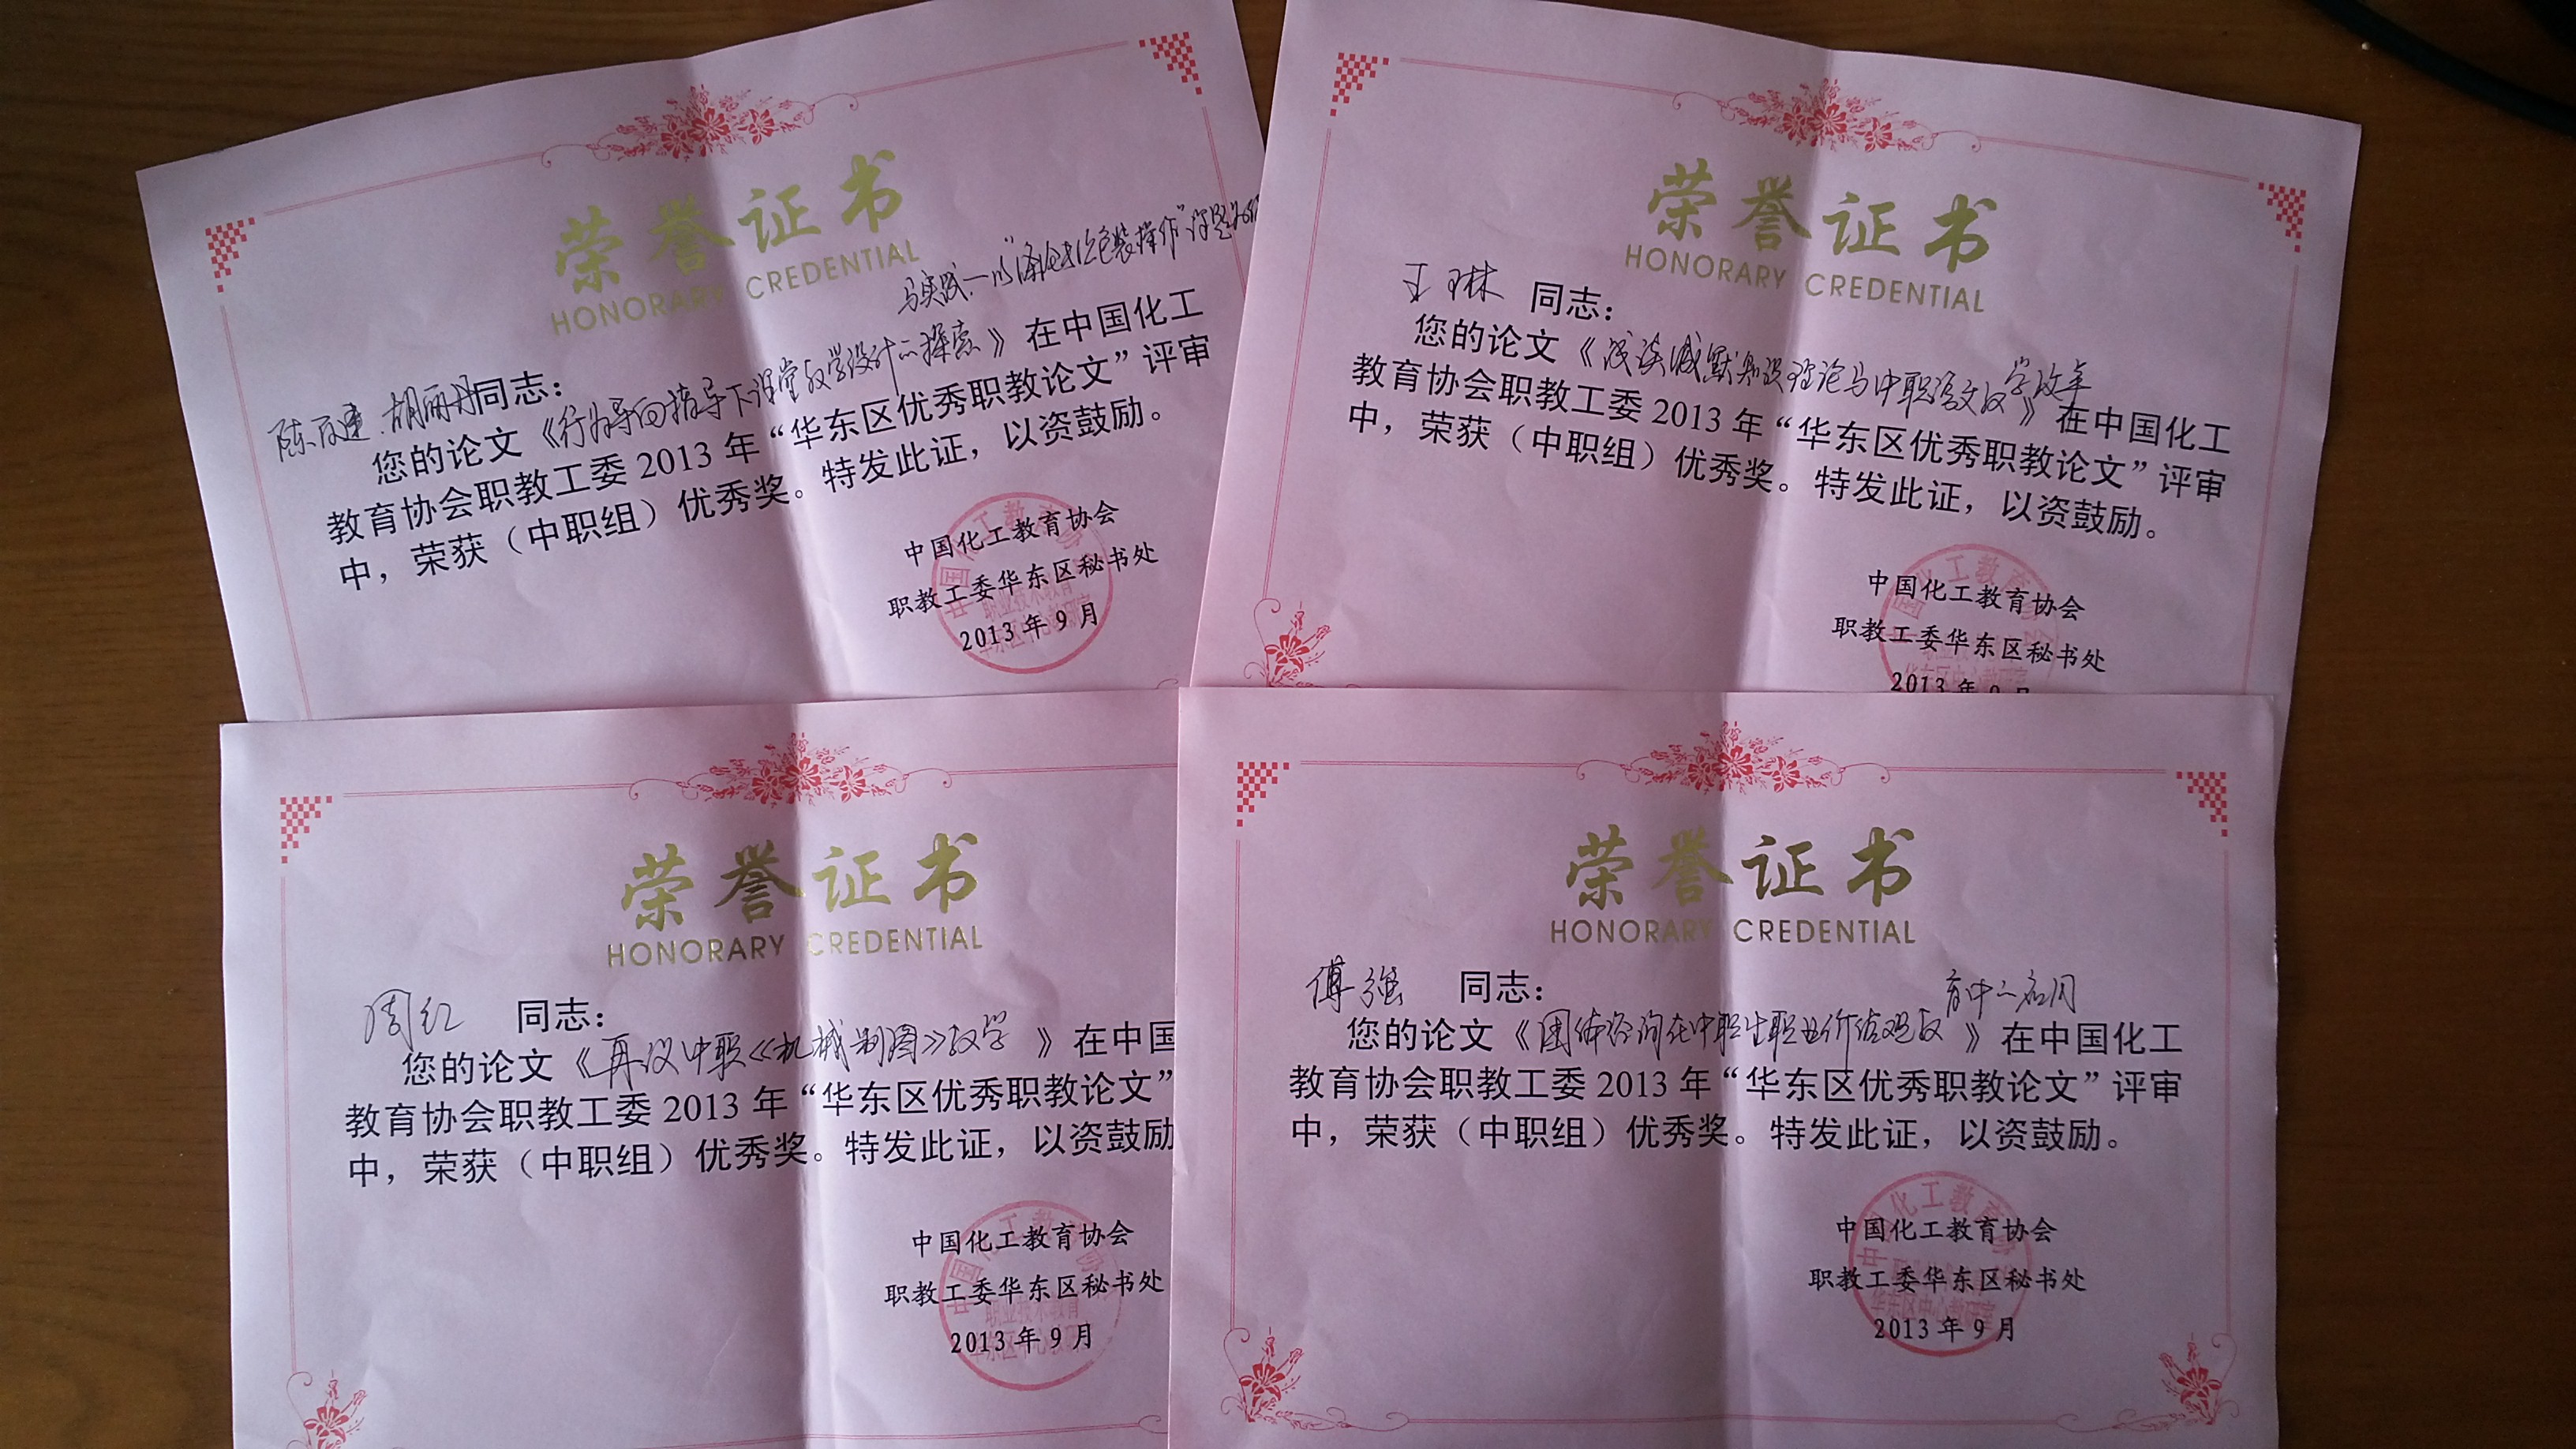 荣誉证书
HONORARY CREDENTIAL
与实践——以"涤纶长丝包装操作"课题为例
陈 建、胡丽丹同志：
您的论文《行为导向指导下课堂教学设计的探索》在中国化工
教育协会职教工委2013年“华东区优秀职教论文”评审
中，荣获（中职组）优秀奖。特发此证，以资鼓励。
中国化工教育协会
职教工委华东区秘书处
2013年9月
荣誉证书
HONORARY CREDENTIAL
王琳 同志：
学改革
您的论文《浅谈缄默知识理论与中职语文教》在中国化工
教育协会职教工委2013年“华东区优秀职教论文”评审
中，荣获（中职组）优秀奖。特发此证，以资鼓励。
中国化工教育协会
职教工委华东区秘书处
2013年9月
荣誉证书
HONORARY CREDENTIAL
周红 同志：
您的论文《再议中职《机械制图》教学》在中国
教育协会职教工委2013年“华东区优秀职教论文”
中，荣获（中职组）优秀奖。特发此证，以资鼓励
中国化工教育协会
职教工委华东区秘书处
2013年9月
荣誉证书
HONORARY CREDENTIAL
傅强 同志：
育中的应用
您的论文《团体咨询在中职生职业价值观教》在中国化工
教育协会职教工委2013年“华东区优秀职教论文”评审
中，荣获（中职组）优秀奖。特发此证，以资鼓励。
中国化工教育协会
职教工委华东区秘书处
2013年9月